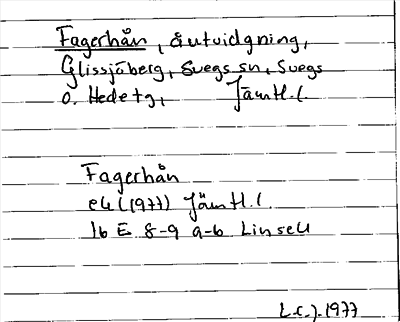 Fagerhån, åutvidgning,
Glissjöberg, Svegs sn, Svegs
o. Hede tg, Jämtl. l.
Fagerhån
ek (1977) Jämtl. l
16 E 8-9 a-b Linsell
L.C.J. 1977